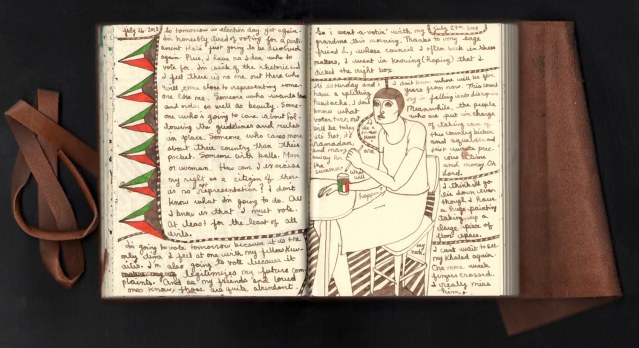 July 26, 2013
So tomorrow is election day yet again.
I'm honestly tired of voting for a parli-
ament that's just going to be dissolved
again. Plus, I have no idea who to
vote for. I'm sick of the rhetoric and
I feel there is no one out there who
will come close to representing some-
one like me. Someone who wants law
and order as well as beauty. Some-
one who is going to care about fol-
lowing the guidelines and rules
in place. Someone who cares more
about their country than their
pocket. Someone with balls. Man
or woman. How can I exercise
my right as a citizen if there
is no representation? I don't
know what I'm going to do. All
I know is that I must vote.
At least for the least of all
evils.
I'm going to vote tomorrow because it is the
only time I feel at one with my fellow Kuw-
aitis. I'm also going to vote because it
legitimizes my future com-
plaints. And as my friends and loved
ones know, those are quite abundant.
July 27th
So I went a-votin' with my
grandma this morning. Thanks to my sage
friend L, whose council I often seek in these
matters, I went in knowing (hoping) that I
ticked the right box.
Its saturday and I
have a splitting
headache. I don't
know what
voter turn out
will be today.
Its hot, it's
ramadan,
and many
away for
the
summer.
what
will
happen
I don't know what will be for
years from now. This count
ry is falling into disrepair
Meanwhile, the people
who are put in charge
of taking care of
this country bicker
and squabble and
waste pre-
cious time
and money. Oh
Lord.
I think I'll go
lie down even
though I have
a huge painting
taking up a
large piece of
floor space.
I can't wait to see
my Khaled again.
One more week
fingers crossed.
I really miss
him.